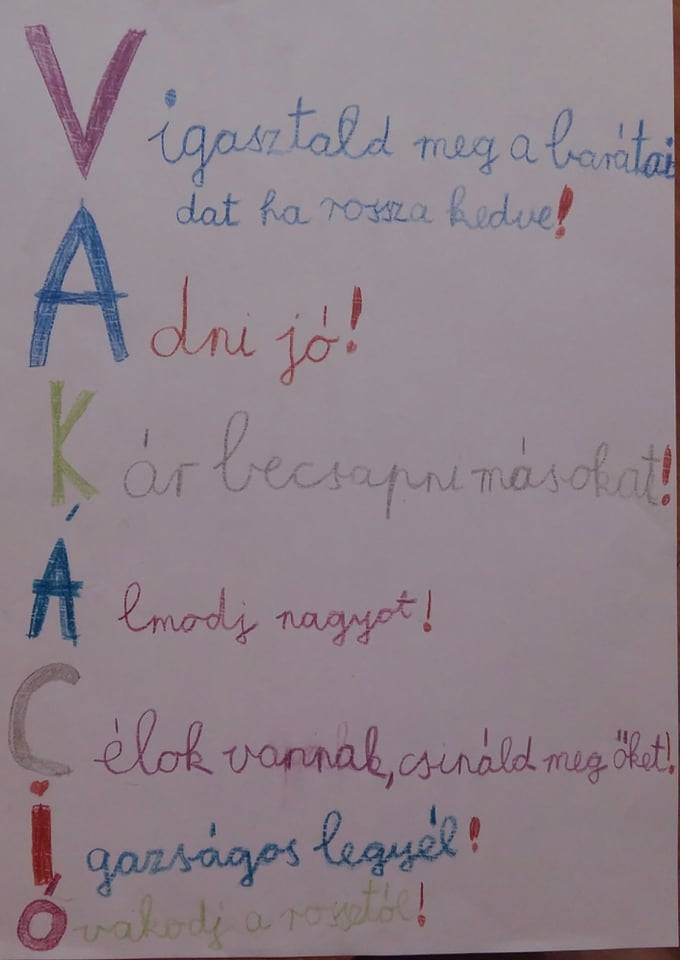 Vigasztald meg a barátai
dat ha rossza kedve!
Adni jó!
Kár becsapni másokat!
Álmodj nagyot!
Célok vannak, csináld meg őket!
Igazságos legyél!
Óvakodj a rossztól!